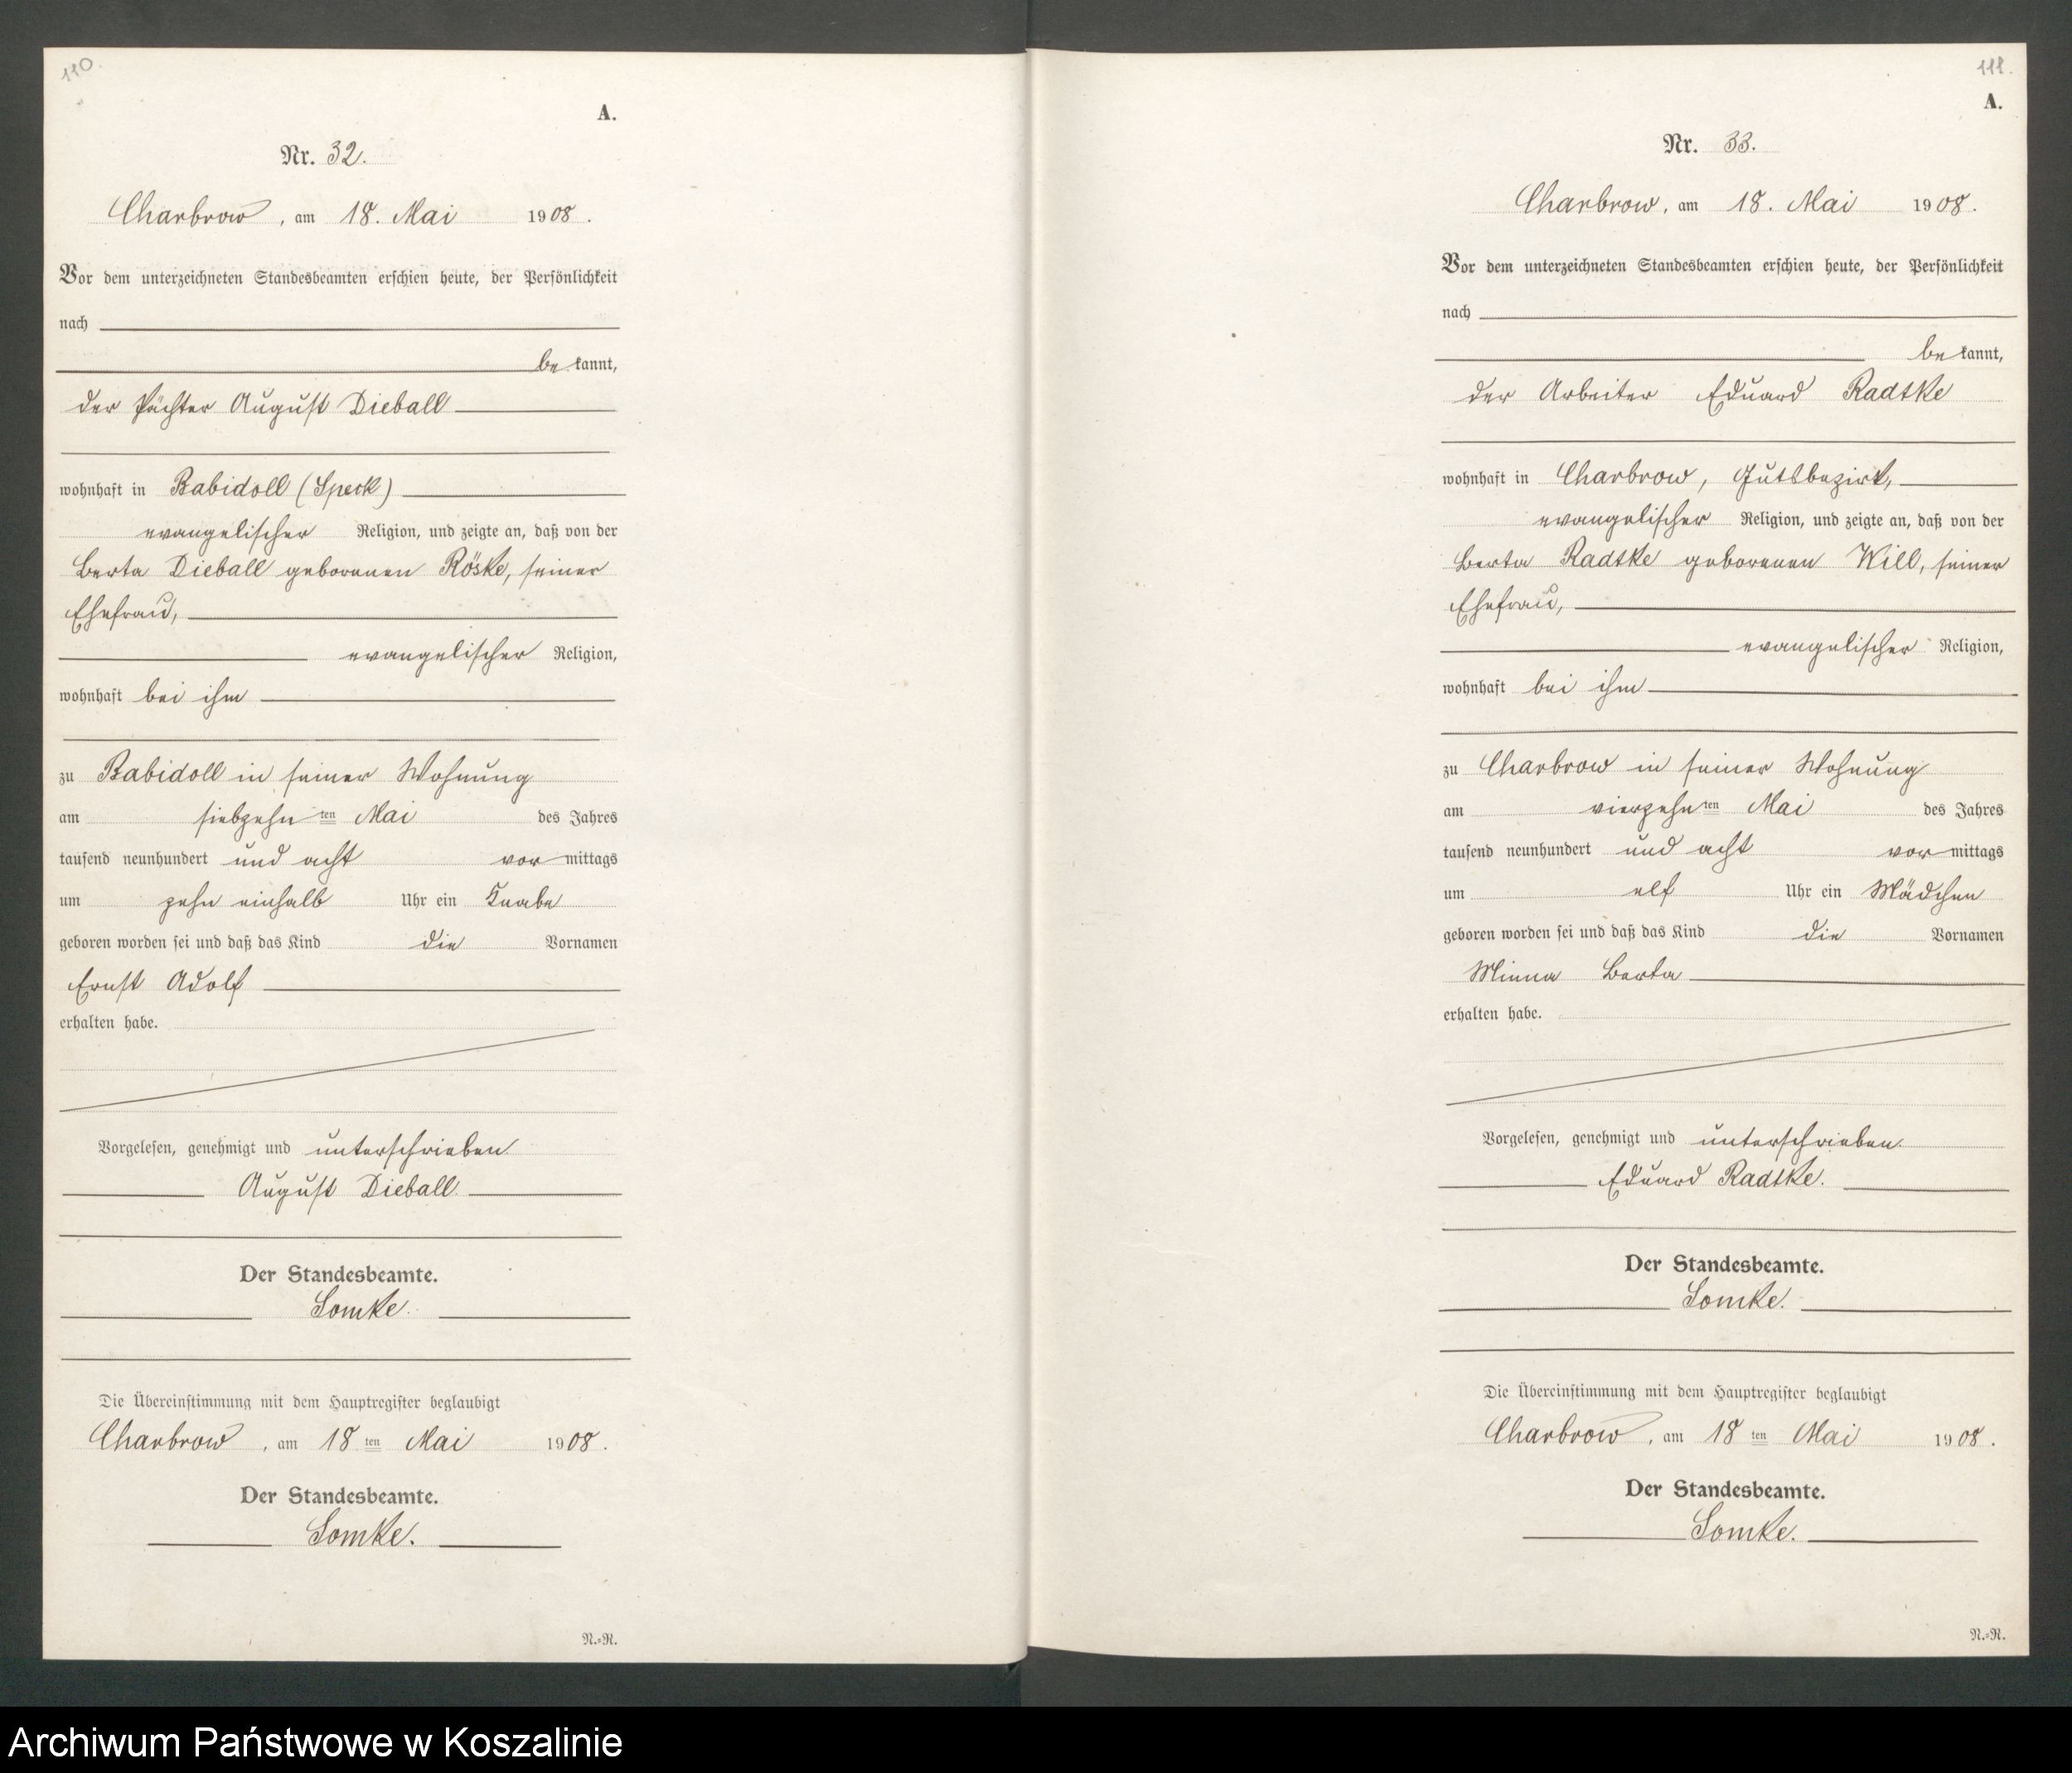 110.
A.
Nr. 32.
Charbrow, am 18. Mai 1908.
Vor dem unterzeichneten Standesbeamten erschien heute, der Persönlichkeit
nach
bekannt,
der Pächter August Dieball
wohnhaft in Babidoll (Speck)
evangelischer Religion, und zeigte an, daß von der
Berta Dieball geborenen Röske, seiner
Ehefrau,
evangelischer Religion,
wohnhaft bei ihm
zu Babidoll in seiner Wohnung
am siebzehnten Mai des Jahres
tausend neunhundert und acht vormittags
um zehn einhalb Uhr ein Knabe
geboren worden sei und daß das Kind die Vornamen
Ernst Adolf
erhalten habe.
Vorgelesen, genehmigt und unterschrieben
August Dieball.
Der Standesbeamte.
Somke.
Die Übereinstimmung mit dem Hauptregister beglaubigt
Charbrow, am 18ten Mai 1908.
Der Standesbeamte.
Somke.
N.=R.
111.
A.
Nr. 33.
Charbrow, am 18. Mai 1908.
Vor dem unterzeichneten Standesbeamten erschien heute, der Persönlichkeit
nach
bekannt,
der Arbeiter Eduard Radtke
wohnhaft in Charbrow, Gutsbezirk,
evangelischer Religion, und zeigte an, daß von der
Berta Radtke geborenen Will, seiner
Ehefrau,
evangelischer Religion,
wohnhaft bei ihm
zu Charbrow in seiner Wohnung
am vierzehnten Mai des Jahres
tausend neunhundert und acht vormittags
um elf Uhr ein Mädchen
geboren worden sei und daß das Kind die Vornamen
Minna Berta
erhalten habe.
Vorgelesen, genehmigt und unterschrieben.
Eduard Radtke.
Der Standesbeamte.
Somke.
Die Übereinstimmung mit dem Hauptregister beglaubigt
Charbrow, am 18ten Mai 1908.
Der Standesbeamte.
Somke.
N.=R.
Archiwum Państwowe w Koszalinie